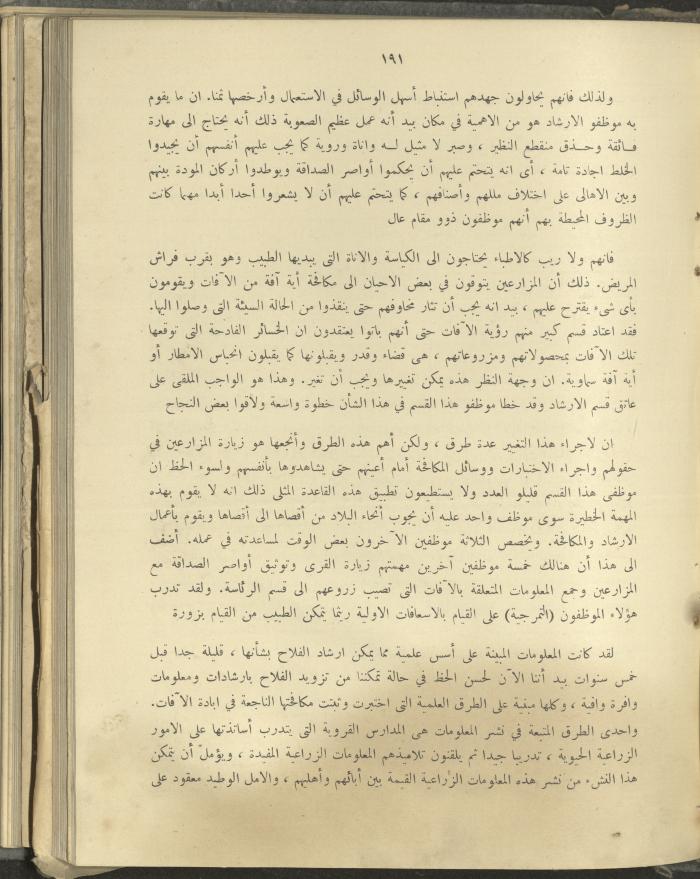 ١٩١
ولذلك فانهم يحاولون جهدهم استنباط أسهل الوسائل في الاستعمال وأرخصها ثمنا. ان ما يقوم
به موظفو الارشاد هو من الاهمية في مكان بيد أنه عمل عظيم الصعوبة ذلك أنه يحتاج الى مهارة
فائقة وحذق منقطع النظير ، وصبر لا مثيل له واناة وروية كما يجب عليهم أنفسهم أن يجيدوا
الخلط اجادة تامة ، أى انه يتحتم عليهم أن يحكموا أواصر الصداقة ويوطدوا أركان المودة بينهم
وبين الاهالى على اختلاف مللهم وأصنافهم ، كما يتحتم عليهم أن لا يشعروا أحدا أبدا مهما كانت
الظروف المحيطة بهم أنهم موظفون ذوو مقام عال
فانهم ولا ريب كالاطباء يحتاجون الى الكياسة والاناة التى يبديها الطبيب وهو بقرب فراش
المريض. ذلك أن المزارعين يتوقون في بعض الاحيان الى مكافحة أية آفة من الآفات ويقومون
بأى شىء يقترح عليهم ، بيد انه يجب أن تثار مخاوفهم حتى ينقذوا من الحالة السيئة التى وصلوا اليها.
فقد اعتاد قسم كبير منهم رؤية الآفات حتى أنهم باتوا يعتقدون ان الخسائر الفادحة التى توقعها
تلك الآفات بمحصولاتهم ومزروعاتهم ، هى قضاء وقدر ويقبلونها كما يقبلون انحباس الامطار أو
أية آفة سماوية. ان وجهة النظر هذه يمكن تغييرها ويجب أن تغير. وهذا هو الواجب الملقى على
عاتق قسم الارشاد وقد خطا موظفو هذا القسم في هذا الشأن خطوة واسعة ولاقوا بعض النجاح
ان لاجراء هذا التغيير عدة طرق ، ولكن أهم هذه الطرق وأنجعها هو زيارة المزارعين في
حقولهم واجراء الاختبارات ووسائل المكافحة أمام أعينهم حتى يشاهدوها بأنفسهم ولسوء الحظ ان
موظفى هذا القسم قليلو العدد ولا يستطيعون تطبيق هذه القاعدة المثلى ذلك انه لا يقوم بهذه
المهمة الخطيرة سوى موظف واحد عليه أن يجوب أنحاء البلاد من أقصاها الى أقصاها ويقوم بأعمال
الارشاد والمكافحة. ويخصص الثلاثة موظفين الآخرون بعض الوقت لمساعدته في عمله. أضف
الى هذا أن هنالك خمسة موظفين آخرين مهمتهم زيارة القرى وتوثيق أواصر الصداقة مع
المزارعين وجمع المعلومات المتعلقة بالآفات التى تصيب زروعهم الى قسم الرئاسة. ولقد تدرب
هؤلاء الموظفون (التمرجية) على القيام بالاسعافات الاولية ريثما يتمكن الطبيب من القيام بزورة
لقد كانت المعلومات المبينة على أسس علمية مما يمكن ارشاد الفلاح بشأنها ، قليلة جدا قبل
خمس سنوات بيد أننا الآن لحسن الحظ في حالة تمكننا من تزويد الفلاح بارشادات ومعلومات
وافرة وافية ، وكلها مبنية على الطرق العلمية التى اختبرت وثبتت مكافحتها الناجعة في ابادة الآفات.
واحدى الطرق المتبعة في نشر المعلومات هى المدارس القروية التى يتدرب أساتذتها على الامور
الزراعية الحيوية ، تدريبا جيدا ثم يلقنون تلاميذهم المعلومات الزراعية المفيدة ، ويؤمل أن يتمكن
هذا النشء من نشر هذه المعلومات الزراعية القيمة بين أبائهم وأهليهم ، والامل الوطيد معقود على